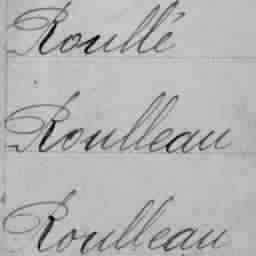 Roullé
Roulleau
Roulleau